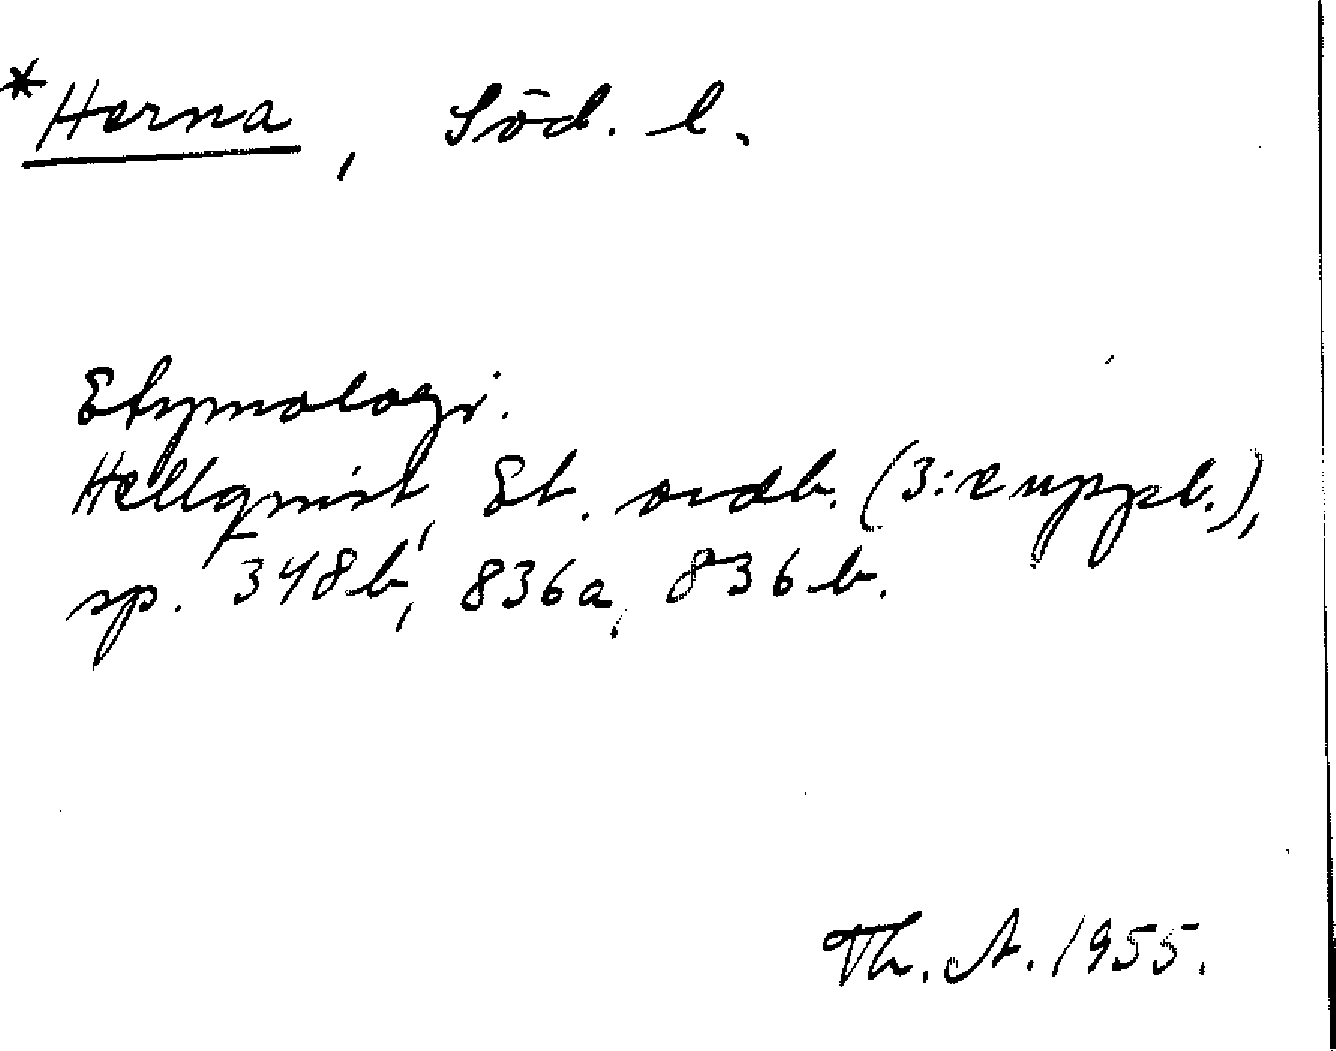 *Horna, Söd. l.
Etymologi.
Hellquist, Et. ordb. (3:e uppl.),
sp. 348b, 836a, 836b.
Th. A. 1955.